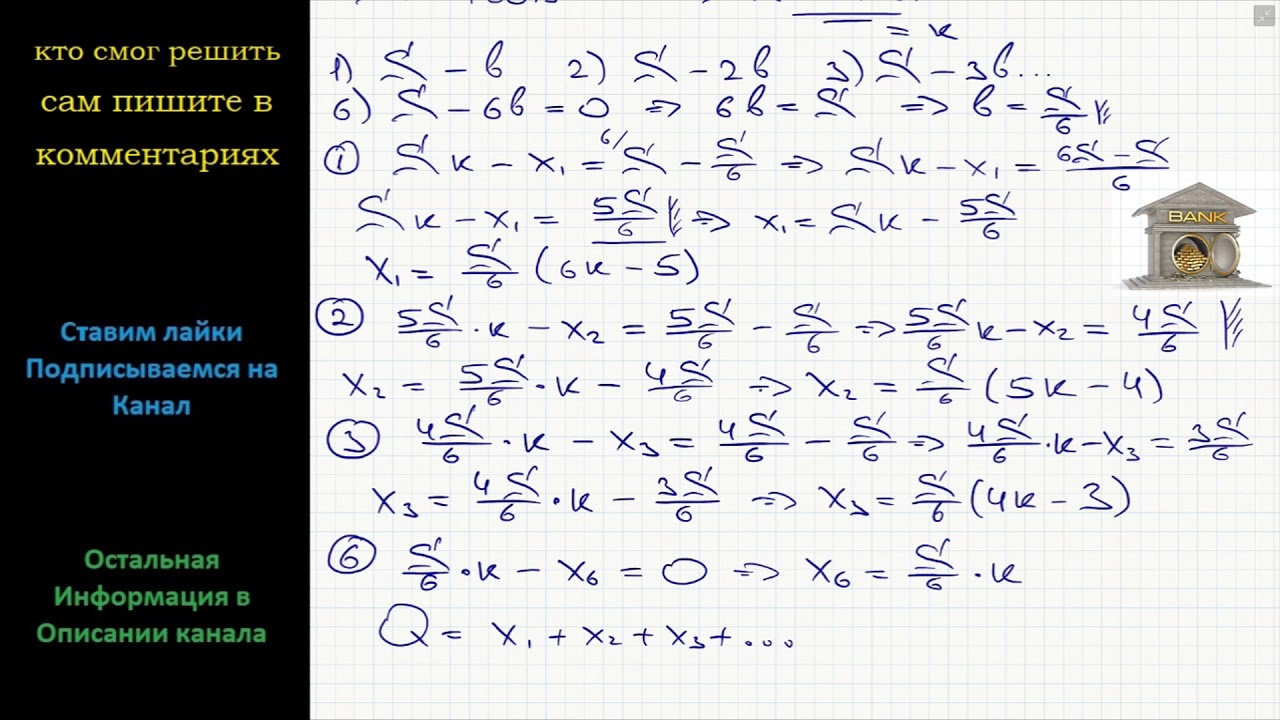 кто смог решить
сам пишите в
комментариях
Ставим лайки
Подписываемся на
Канал
Остальная
Информация в
Описании канала
= k
1) S - b 2) S - 2b 3) S - 3b...
6) S - 6b = 0 => 6b = S => b = S/6
① Sk - x₁ = ⁶/S - S/6 => Sk - x₁ = (6S - S)/6
Sk - x₁ = 5S/6 => x₁ = Sk - 5S/6
x₁ = S/6 (6k - 5)
② 5S/6 · k - x₂ = 5S/6 - S/6 => 5S/6 k - x₂ = 4S/6
x₂ = 5S/6 · k - 4S/6 => x₂ = S/6 (5k - 4)
③ 4S/6 · k - x₃ = 4S/6 - S/6 => 4S/6 · k - x₃ = 3S/6
x₃ = 4S/6 · k - 3S/6 => x₃ = S/6 (4k - 3)
⑥ S/6 · k - x₆ = 0 => x₆ = S/6 · k
Q = x₁ + x₂ + x₃ + ...
BANK